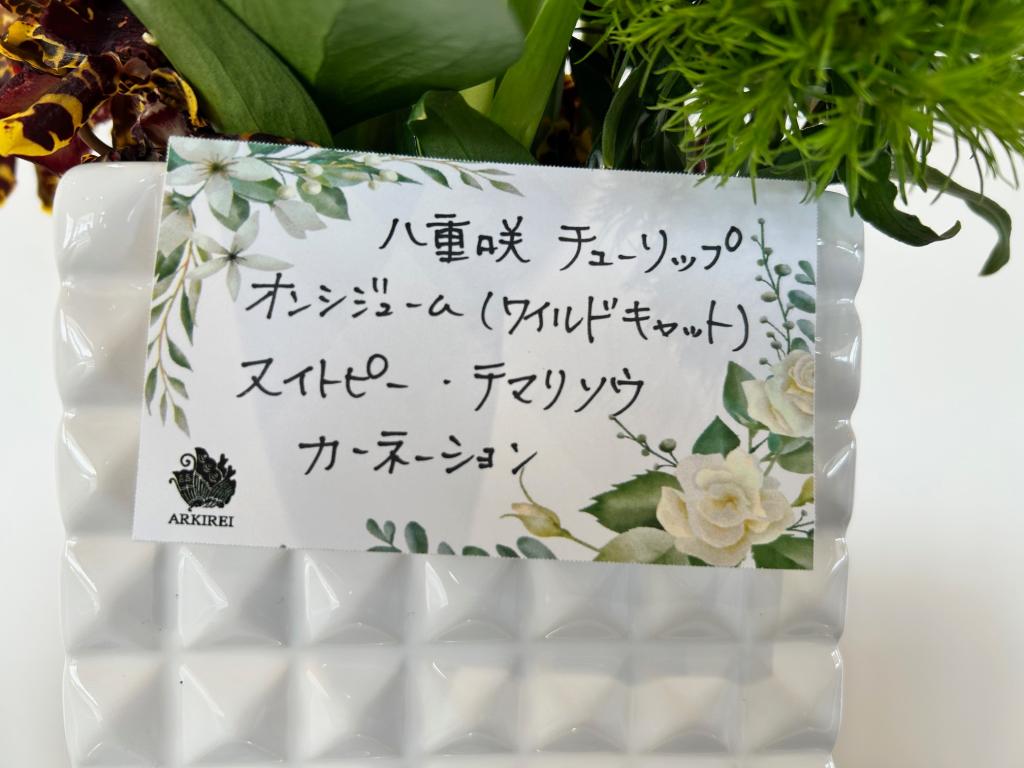 八重咲 チューリップ
オンシジューム(ワイルドキャット)
スイトピー・テマリソウ
カーネーション
ARKIREI